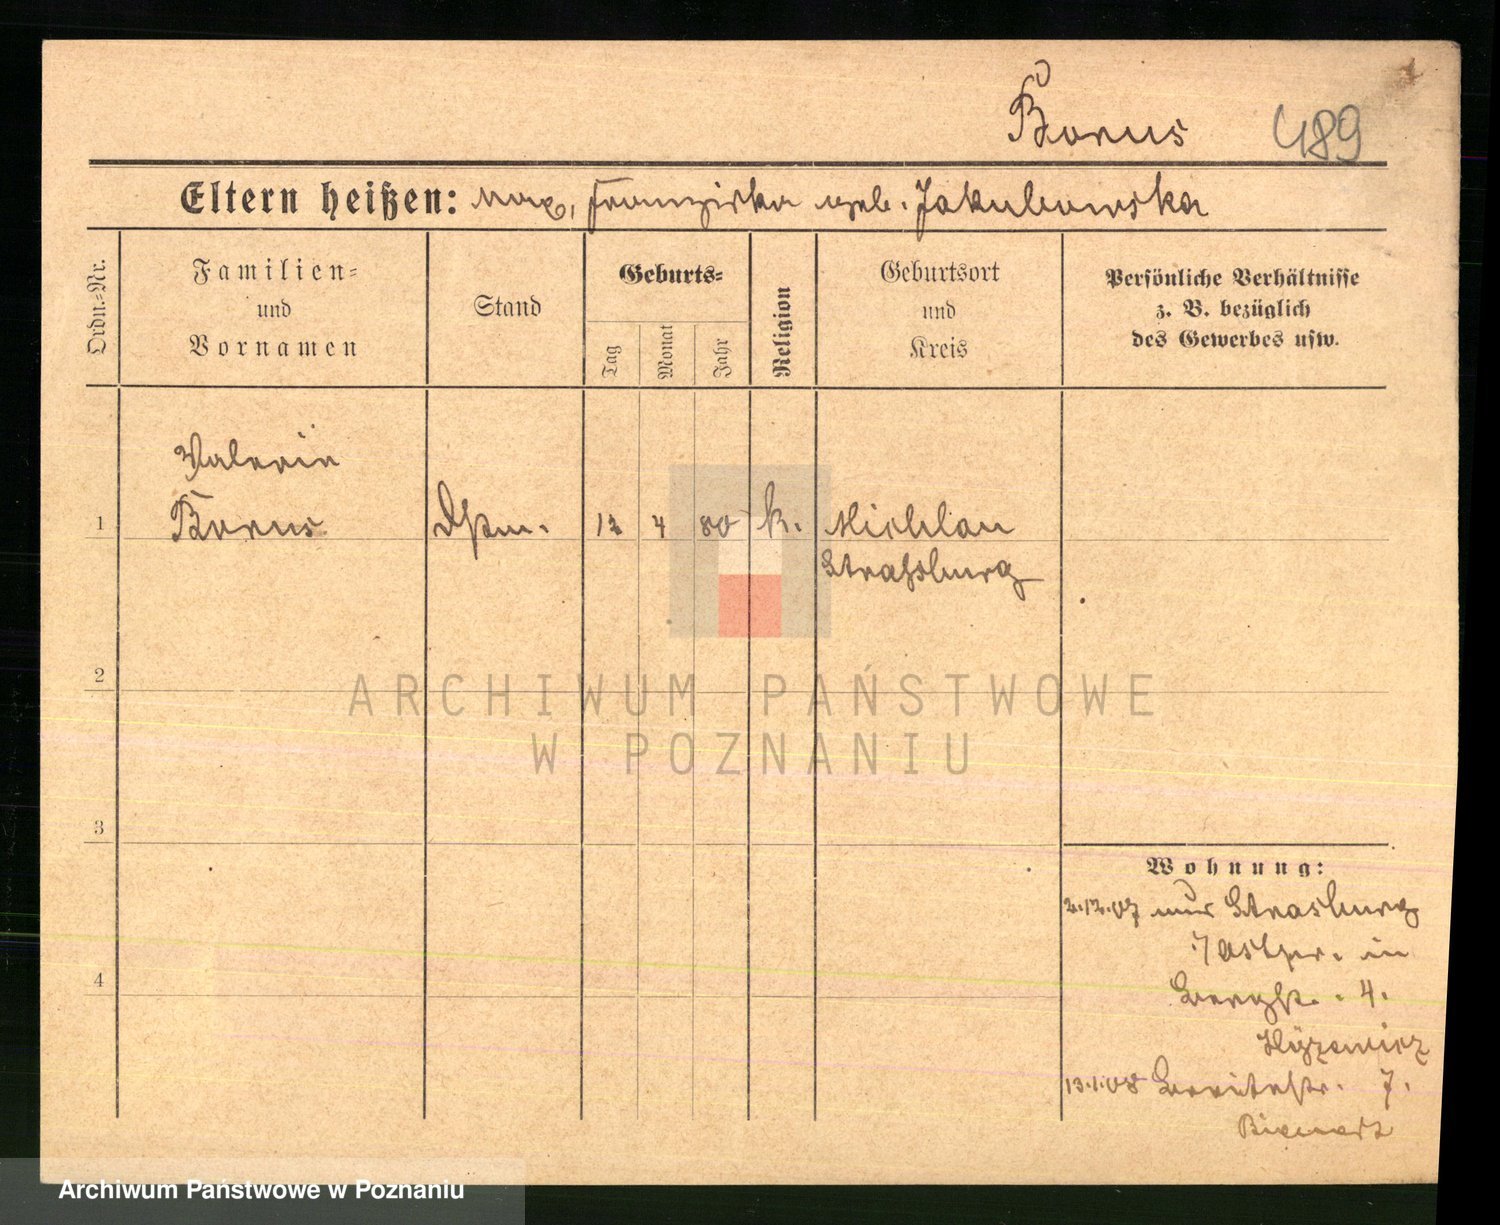 Borus 489
Eltern heißen: Max, Franziska geb. Jakubowska
Ordn.-Nr.
Familien-
und
Vornamen
Stand
Geburts-
Tag
Monat
Jahr
Religion
Geburtsort
und
Kreis
Persönliche Verhältnisse
z. B. bezüglich
des Gewerbes usw.
Valerie
1 Borus 12 4 80 k. Michlau
Strassburg
2
ARCHIWUM PAŃSTWOWE
W POZNANIU
3
Wohnung:
2.12.07 aus Strasburg
in
4
Bergstr. 4.
13.1.08 Breitestr. 7.
Archiwum Państwowe w Poznaniu